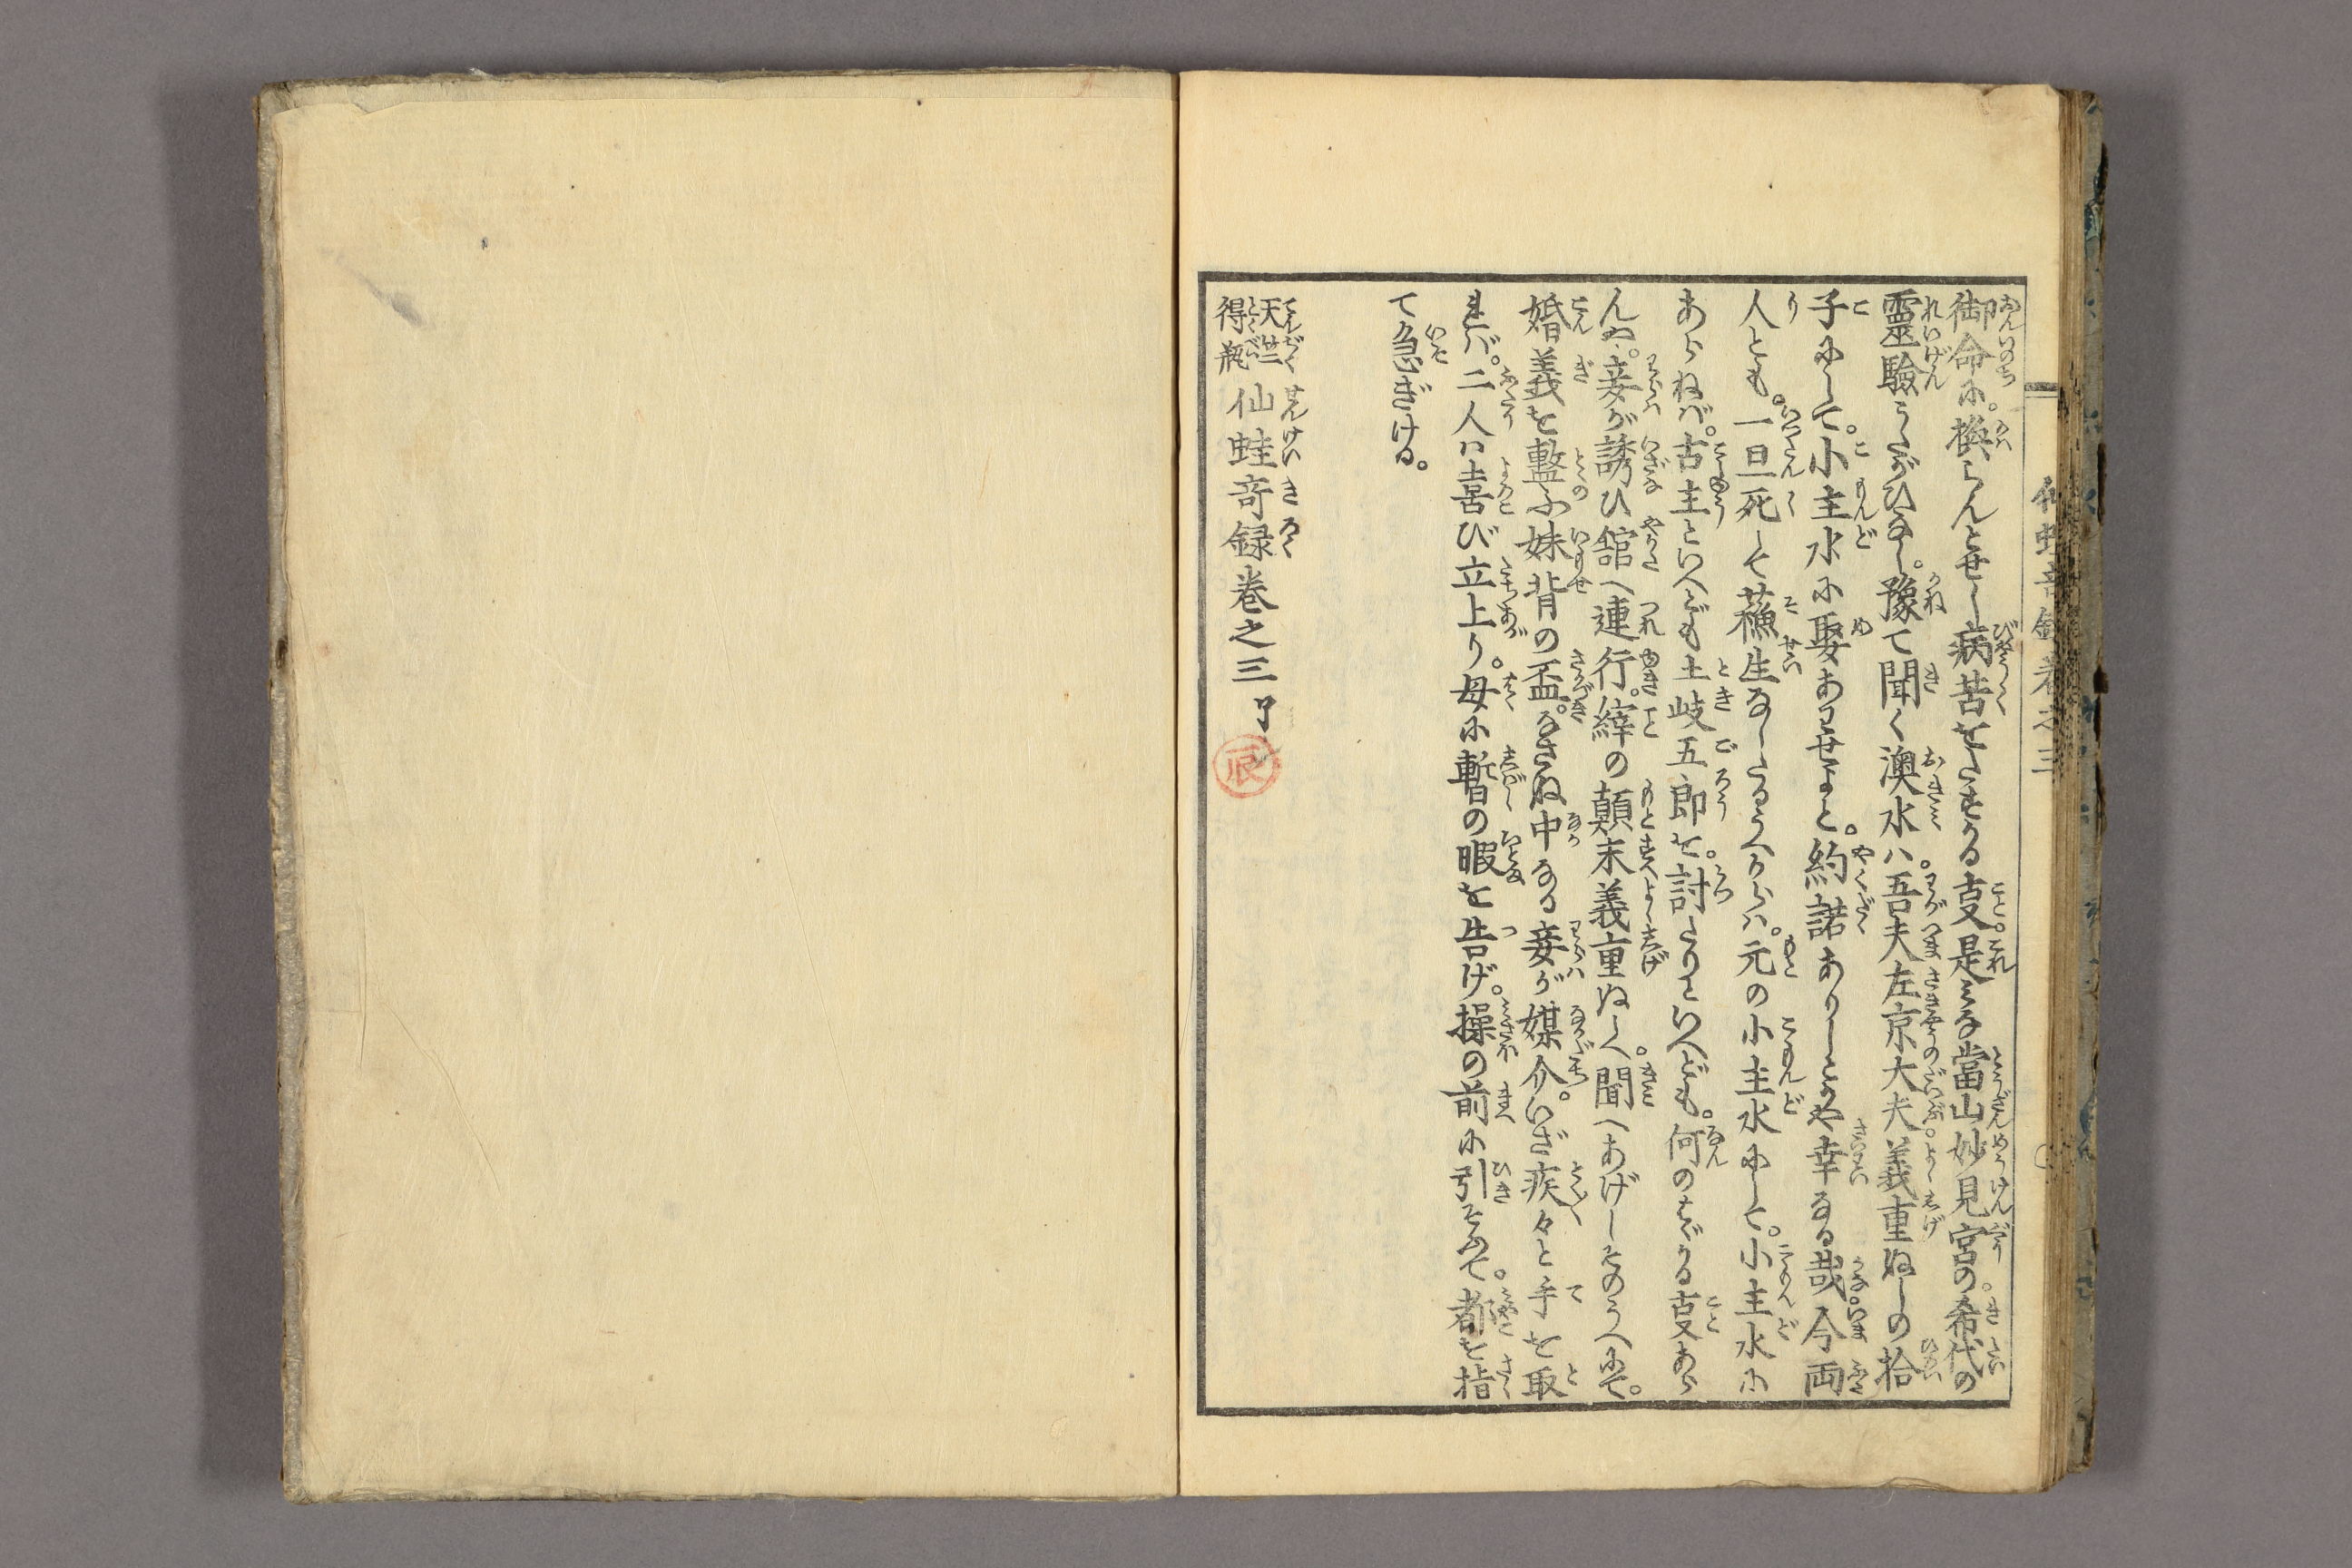 御命に。換らんとせし病苦をたすかる㕝。是みな當山妙見宮の希代の
靈驗うたがひなし。豫て聞く澳水ハ。吾夫左京大夫義重ぬしの拾
子にして。小主水に娶あわせよと。約諾ありしとかや幸なる哉今両
人とも。一旦死して蘓生なしたるうへからハ。元の小主水にして。小主水に
あらねバ。古主といへども土岐五郎を。討たりといへども。何のはゞかる㕝あら
んや。妾が誘ひ舘へ連行。縡の顛末義重ぬしへ。聞へあげしそのうへにて。
婚義を整ふ妹背の盃。なさぬ中なる妾が媒介。いざ疾々と手を取
れバ。二人ハ喜び立上り。母に暫の暇を告げ。操の前に引そふて。都を指
て急ぎける。
天竺得瓶仙蛙奇録巻之三了
辰
仙蛙奇録巻之三